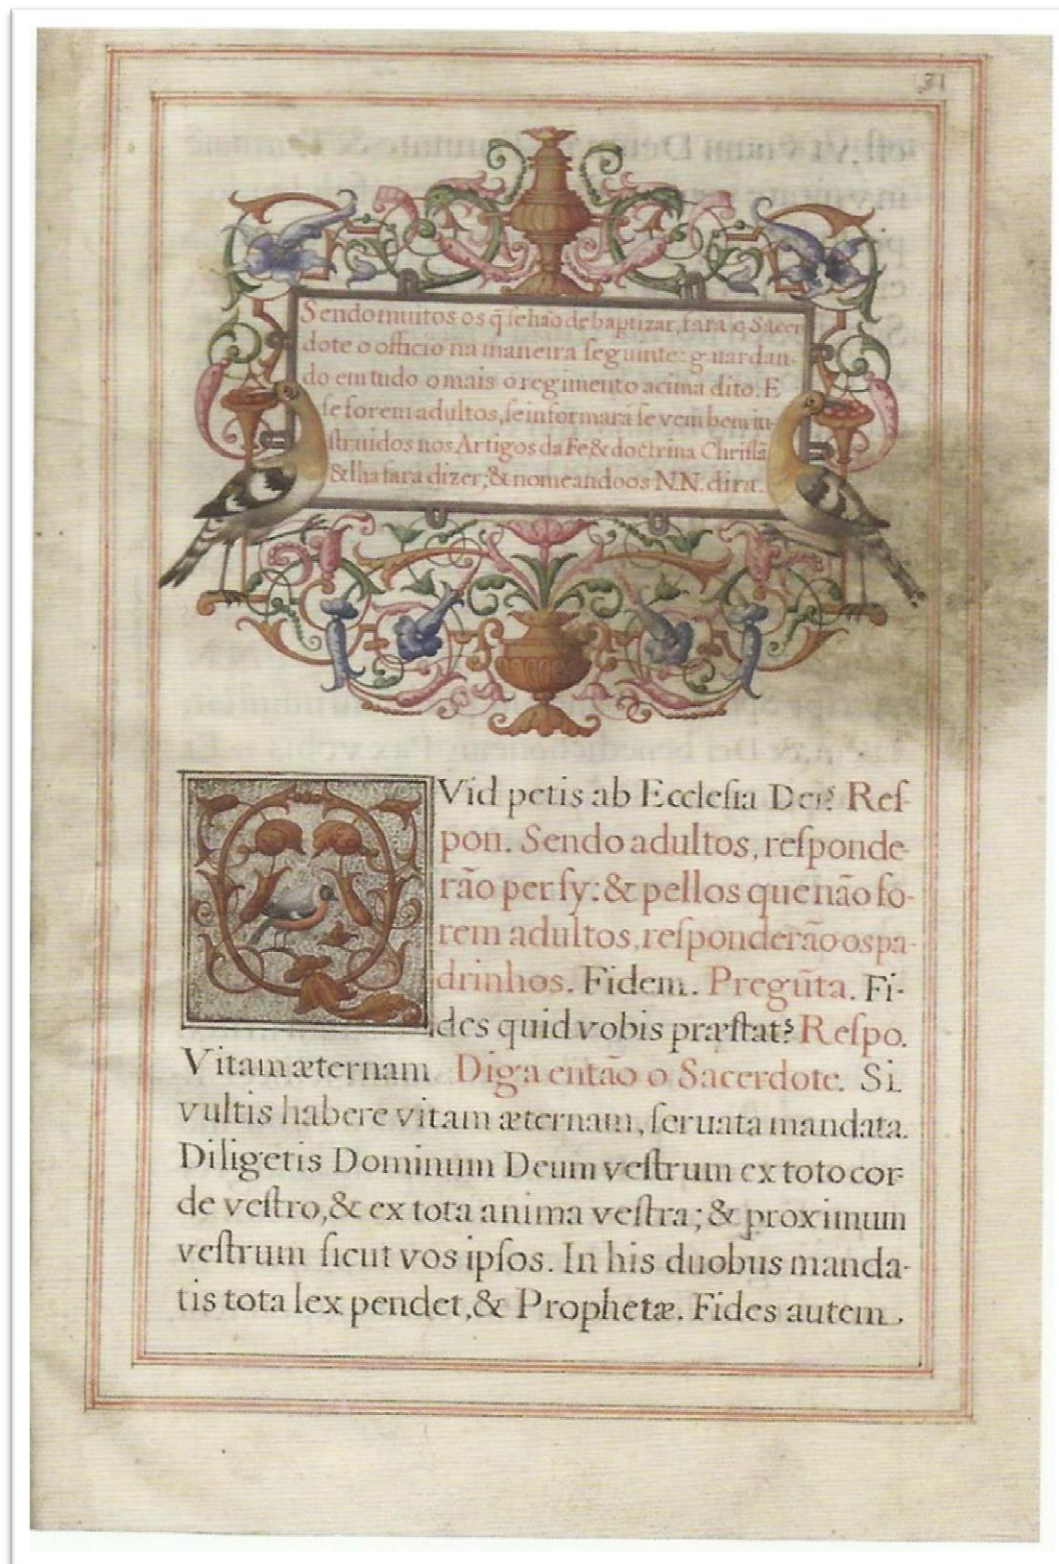 31
Sendo muitos os q̃ se hão de baptizar, fara o Sacer
dote o officio na maneira ſeguinte: guardan-
do em tudo o mais o regimento acima dito. E
ſe forem adultos, ſe informará ſe vem bem in-
ſtruidos nos Artigos da Fe, & doctrina Chriſtã
& lha fara dizer, & nomeandoos N.N. dira.
QVid petis ab Eccleſia Dei? Reſ-
pon. Sendo adultos, reſponde-
rão per ſy: & pellos que não fo-
rem adultos, reſponderão os pa-
drinhos. Fidem. Pregũta. Fi-
des quid vobis præſtat? Reſpo.
Vitam æternam. Diga então o Sacerdote. Si
vultis habere vitam æternam, ſeruata mandata.
Diligetis Dominum Deum veſtrum ex toto cor-
de veſtro, & ex tota anima veſtra; & proximum
veſtrum ſicut vos ipſos. In his duobus manda-
tis tota lex pendet, & Prophetæ. Fides autem